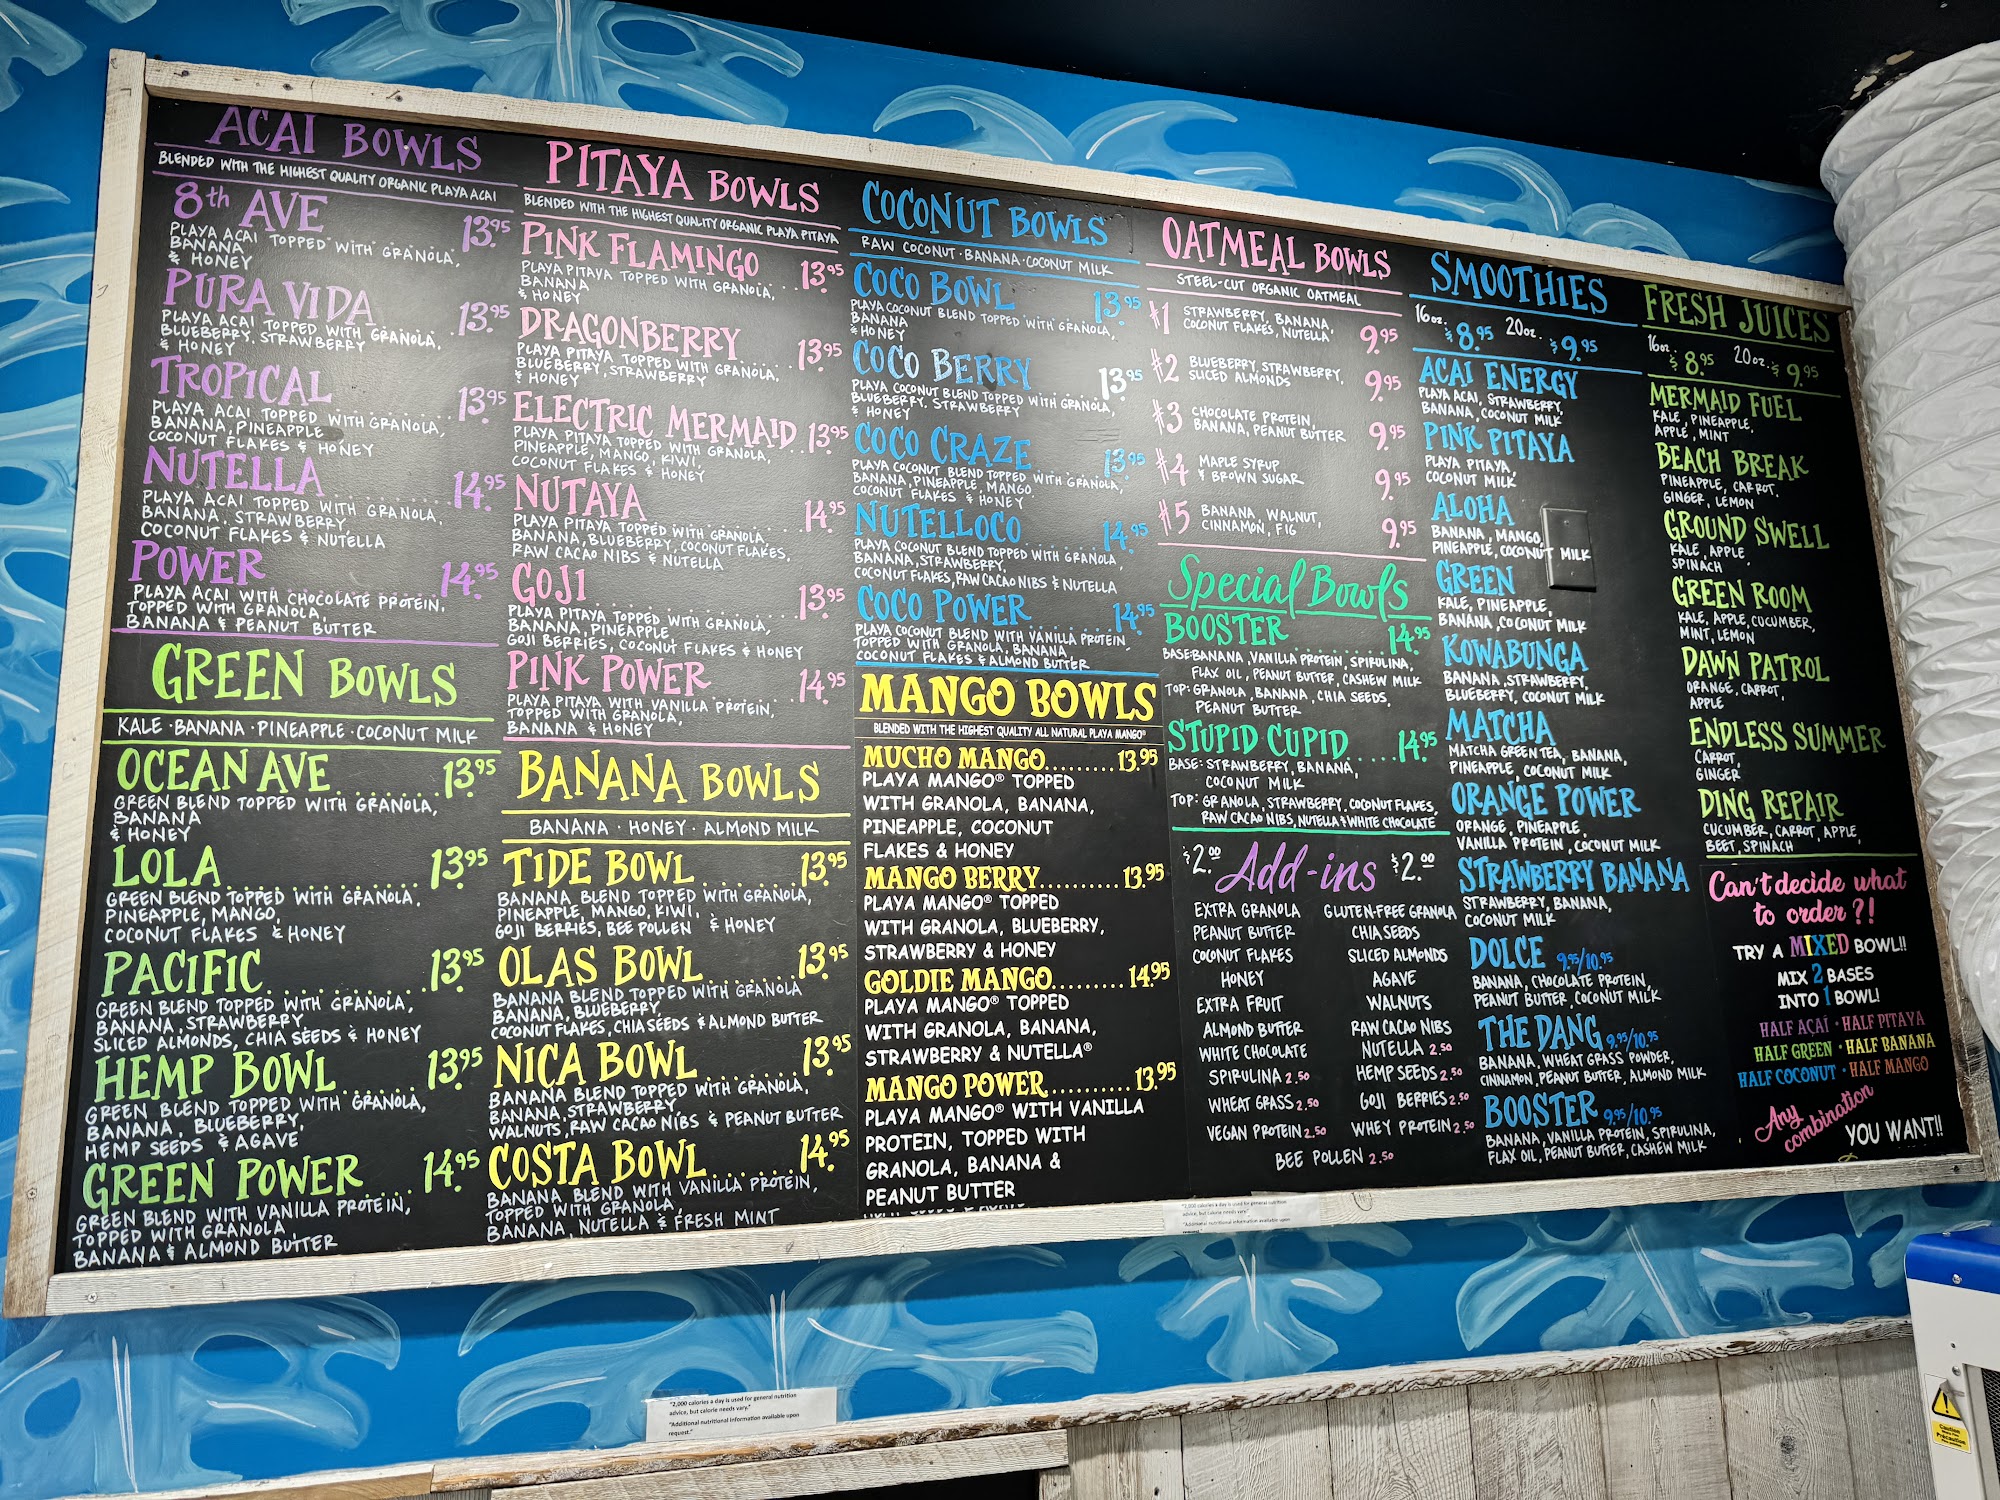 ACAI BOWLS
BLENDED WITH THE HIGHEST QUALITY ORGANIC PLAYA ACAI
8th AVE 13.95
PLAYA ACAI TOPPED WITH GRANOLA,
BANANA
& HONEY
PURA VIDA 13.95
PLAYA ACAI TOPPED WITH GRANOLA,
BLUEBERRY, STRAWBERRY
& HONEY
TROPICAL 13.95
PLAYA ACAI TOPPED WITH GRANOLA,
BANANA, PINEAPPLE
COCONUT FLAKES & HONEY
NUTELLA 14.95
PLAYA ACAI TOPPED WITH GRANOLA,
BANANA, STRAWBERRY,
COCONUT FLAKES & NUTELLA
POWER 14.95
PLAYA ACAI WITH CHOCOLATE PROTEIN,
TOPPED WITH GRANOLA,
BANANA & PEANUT BUTTER
GREEN BOWLS
KALE · BANANA · PINEAPPLE · COCONUT MILK
OCEAN AVE 13.95
GREEN BLEND TOPPED WITH GRANOLA,
BANANA
& HONEY
LOLA 13.95
GREEN BLEND TOPPED WITH GRANOLA,
PINEAPPLE, MANGO,
COCONUT FLAKES & HONEY
PACIFIC 13.95
GREEN BLEND TOPPED WITH GRANOLA,
BANANA, STRAWBERRY,
SLICED ALMONDS, CHIA SEEDS & HONEY
HEMP BOWL 13.95
GREEN BLEND TOPPED WITH GRANOLA,
BANANA, BLUEBERRY,
HEMP SEEDS & AGAVE
GREEN POWER 14.95
GREEN BLEND WITH VANILLA PROTEIN,
TOPPED WITH GRANOLA
BANANA & ALMOND BUTTER
PITAYA BOWLS
BLENDED WITH THE HIGHEST QUALITY ORGANIC PLAYA PITAYA
PINK FLAMINGO 13.95
PLAYA PITAYA TOPPED WITH GRANOLA,
BANANA
& HONEY
DRAGONBERRY 13.95
PLAYA PITAYA TOPPED WITH GRANOLA,
BLUEBERRY, STRAWBERRY
& HONEY
ELECTRIC MERMAID 13.95
PLAYA PITAYA TOPPED WITH GRANOLA,
PINEAPPLE, MANGO, KIWI,
COCONUT FLAKES & HONEY
NUTAYA 14.95
PLAYA PITAYA TOPPED WITH GRANOLA,
BANANA, BLUEBERRY, COCONUT FLAKES,
RAW CACAO NIBS & NUTELLA
GOJI 13.95
PLAYA PITAYA TOPPED WITH GRANOLA,
BANANA, PINEAPPLE
GOJI BERRIES, COCONUT FLAKES & HONEY
PINK POWER 14.95
PLAYA PITAYA WITH VANILLA PROTEIN,
TOPPED WITH GRANOLA,
BANANA & HONEY
BANANA BOWLS
BANANA · HONEY · ALMOND MILK
TIDE BOWL 13.95
BANANA BLEND TOPPED WITH GRANOLA,
PINEAPPLE, MANGO, KIWI,
GOJI BERRIES, BEE POLLEN & HONEY
OLAS BOWL 13.95
BANANA BLEND TOPPED WITH GRANOLA
BANANA, BLUEBERRY,
COCONUT FLAKES, CHIA SEEDS & ALMOND BUTTER
NICA BOWL 13.95
BANANA BLEND TOPPED WITH GRANOLA,
BANANA, STRAWBERRY,
WALNUTS, RAW CACAO NIBS & PEANUT BUTTER
COSTA BOWL 14.95
BANANA BLEND WITH VANILLA PROTEIN,
TOPPED WITH GRANOLA,
BANANA, NUTELLA & FRESH MINT
COCONUT BOWLS
RAW COCONUT · BANANA · COCONUT MILK
COCO BOWL 13.95
PLAYA COCONUT BLEND TOPPED WITH GRANOLA,
BANANA
& HONEY
COCO BERRY 13.95
PLAYA COCONUT BLEND TOPPED WITH GRANOLA,
BLUEBERRY, STRAWBERRY
& HONEY
COCO CRAZE 13.95
PLAYA COCONUT BLEND TOPPED WITH GRANOLA,
BANANA, PINEAPPLE, MANGO,
COCONUT FLAKES & HONEY
NUTELLOCO 14.95
PLAYA COCONUT BLEND TOPPED WITH GRANOLA,
BANANA, STRAWBERRY,
COCONUT FLAKES, RAW CACAO NIBS & NUTELLA
COCO POWER 14.95
PLAYA COCONUT BLEND WITH VANILLA PROTEIN,
TOPPED WITH GRANOLA, BANANA,
COCONUT FLAKES & ALMOND BUTTER
MANGO BOWLS
BLENDED WITH THE HIGHEST QUALITY ALL NATURAL PLAYA MANGO®
MUCHO MANGO.........13.95
PLAYA MANGO® TOPPED
WITH GRANOLA, BANANA,
PINEAPPLE, COCONUT
FLAKES & HONEY
MANGO BERRY..........13.95
PLAYA MANGO® TOPPED
WITH GRANOLA, BLUEBERRY,
STRAWBERRY & HONEY
GOLDIE MANGO.........14.95
PLAYA MANGO® TOPPED
WITH GRANOLA, BANANA,
STRAWBERRY & NUTELLA®
MANGO POWER..........13.95
PLAYA MANGO® WITH VANILLA
PROTEIN, TOPPED WITH
GRANOLA, BANANA &
PEANUT BUTTER
OATMEAL BOWLS
STEEL-CUT ORGANIC OATMEAL
#1 STRAWBERRY, BANANA,
COCONUT FLAKES, NUTELLA 9.95
#2 BLUEBERRY, STRAWBERRY,
SLICED ALMONDS 9.95
#3 CHOCOLATE PROTEIN,
BANANA, PEANUT BUTTER 9.95
#4 MAPLE SYRUP
& BROWN SUGAR 9.95
#5 BANANA, WALNUT,
CINNAMON, FIG 9.95
Special Bowls
BOOSTER 14.95
BASE: BANANA, VANILLA PROTEIN, SPIRULINA,
FLAX OIL, PEANUT BUTTER, CASHEW MILK
TOP: GRANOLA, BANANA, CHIA SEEDS,
PEANUT BUTTER
STUPID CUPID 14.95
BASE: STRAWBERRY, BANANA,
COCONUT MILK
TOP: GRANOLA, STRAWBERRY, COCONUT FLAKES,
RAW CACAO NIBS, NUTELLA & WHITE CHOCOLATE
$2.00 Add-ins $2.00
EXTRA GRANOLA GLUTEN-FREE GRANOLA
PEANUT BUTTER CHIA SEEDS
COCONUT FLAKES SLICED ALMONDS
HONEY AGAVE
EXTRA FRUIT WALNUTS
ALMOND BUTTER RAW CACAO NIBS
WHITE CHOCOLATE NUTELLA 2.50
SPIRULINA 2.50 HEMP SEEDS 2.50
WHEAT GRASS 2.50 GOJI BERRIES 2.50
VEGAN PROTEIN 2.50 WHEY PROTEIN 2.50
BEE POLLEN 2.50
SMOOTHIES
16oz. $8.95 20oz. $9.95
ACAI ENERGY
PLAYA ACAI, STRAWBERRY,
BANANA, COCONUT MILK
PINK PITAYA
PLAYA PITAYA,
COCONUT MILK
ALOHA
BANANA, MANGO,
PINEAPPLE, COCONUT MILK
GREEN
KALE, PINEAPPLE,
BANANA, COCONUT MILK
KOWABUNGA
BANANA, STRAWBERRY,
BLUEBERRY, COCONUT MILK
MATCHA
MATCHA GREEN TEA, BANANA,
PINEAPPLE, COCONUT MILK
ORANGE POWER
ORANGE, PINEAPPLE,
VANILLA PROTEIN, COCONUT MILK
STRAWBERRY BANANA
STRAWBERRY, BANANA,
COCONUT MILK
DOLCE 9.95/10.95
BANANA, CHOCOLATE PROTEIN,
PEANUT BUTTER, COCONUT MILK
THE DANG 9.95/10.95
BANANA, WHEAT GRASS POWDER,
CINNAMON, PEANUT BUTTER, ALMOND MILK
BOOSTER 9.95/10.95
BANANA, VANILLA PROTEIN, SPIRULINA,
FLAX OIL, PEANUT BUTTER, CASHEW MILK
FRESH JUICES
16oz $8.95 20oz. $9.95
MERMAID FUEL
KALE, PINEAPPLE,
APPLE, MINT
BEACH BREAK
PINEAPPLE, CARROT,
GINGER, LEMON
GROUND SWELL
KALE, APPLE,
SPINACH
GREEN ROOM
KALE, APPLE, CUCUMBER,
MINT, LEMON
DAWN PATROL
ORANGE, CARROT,
APPLE
ENDLESS SUMMER
CARROT,
GINGER
DING REPAIR
CUCUMBER, CARROT, APPLE,
BEET, SPINACH
Can't decide what
to order?!
TRY A MIXED BOWL!!
MIX 2 BASES
INTO 1 BOWL!
HALF AÇAÍ · HALF PITAYA
HALF GREEN · HALF BANANA
HALF COCONUT · HALF MANGO
Any
combination
YOU WANT!!
"2,000 calories a day is used for general nutrition
advice, but calorie needs vary."
"Additional nutritional information available upon
request."
"2,000 calories a day is used for general nutrition
advice, but calorie needs vary."
"Additional nutritional information available upon
Caution